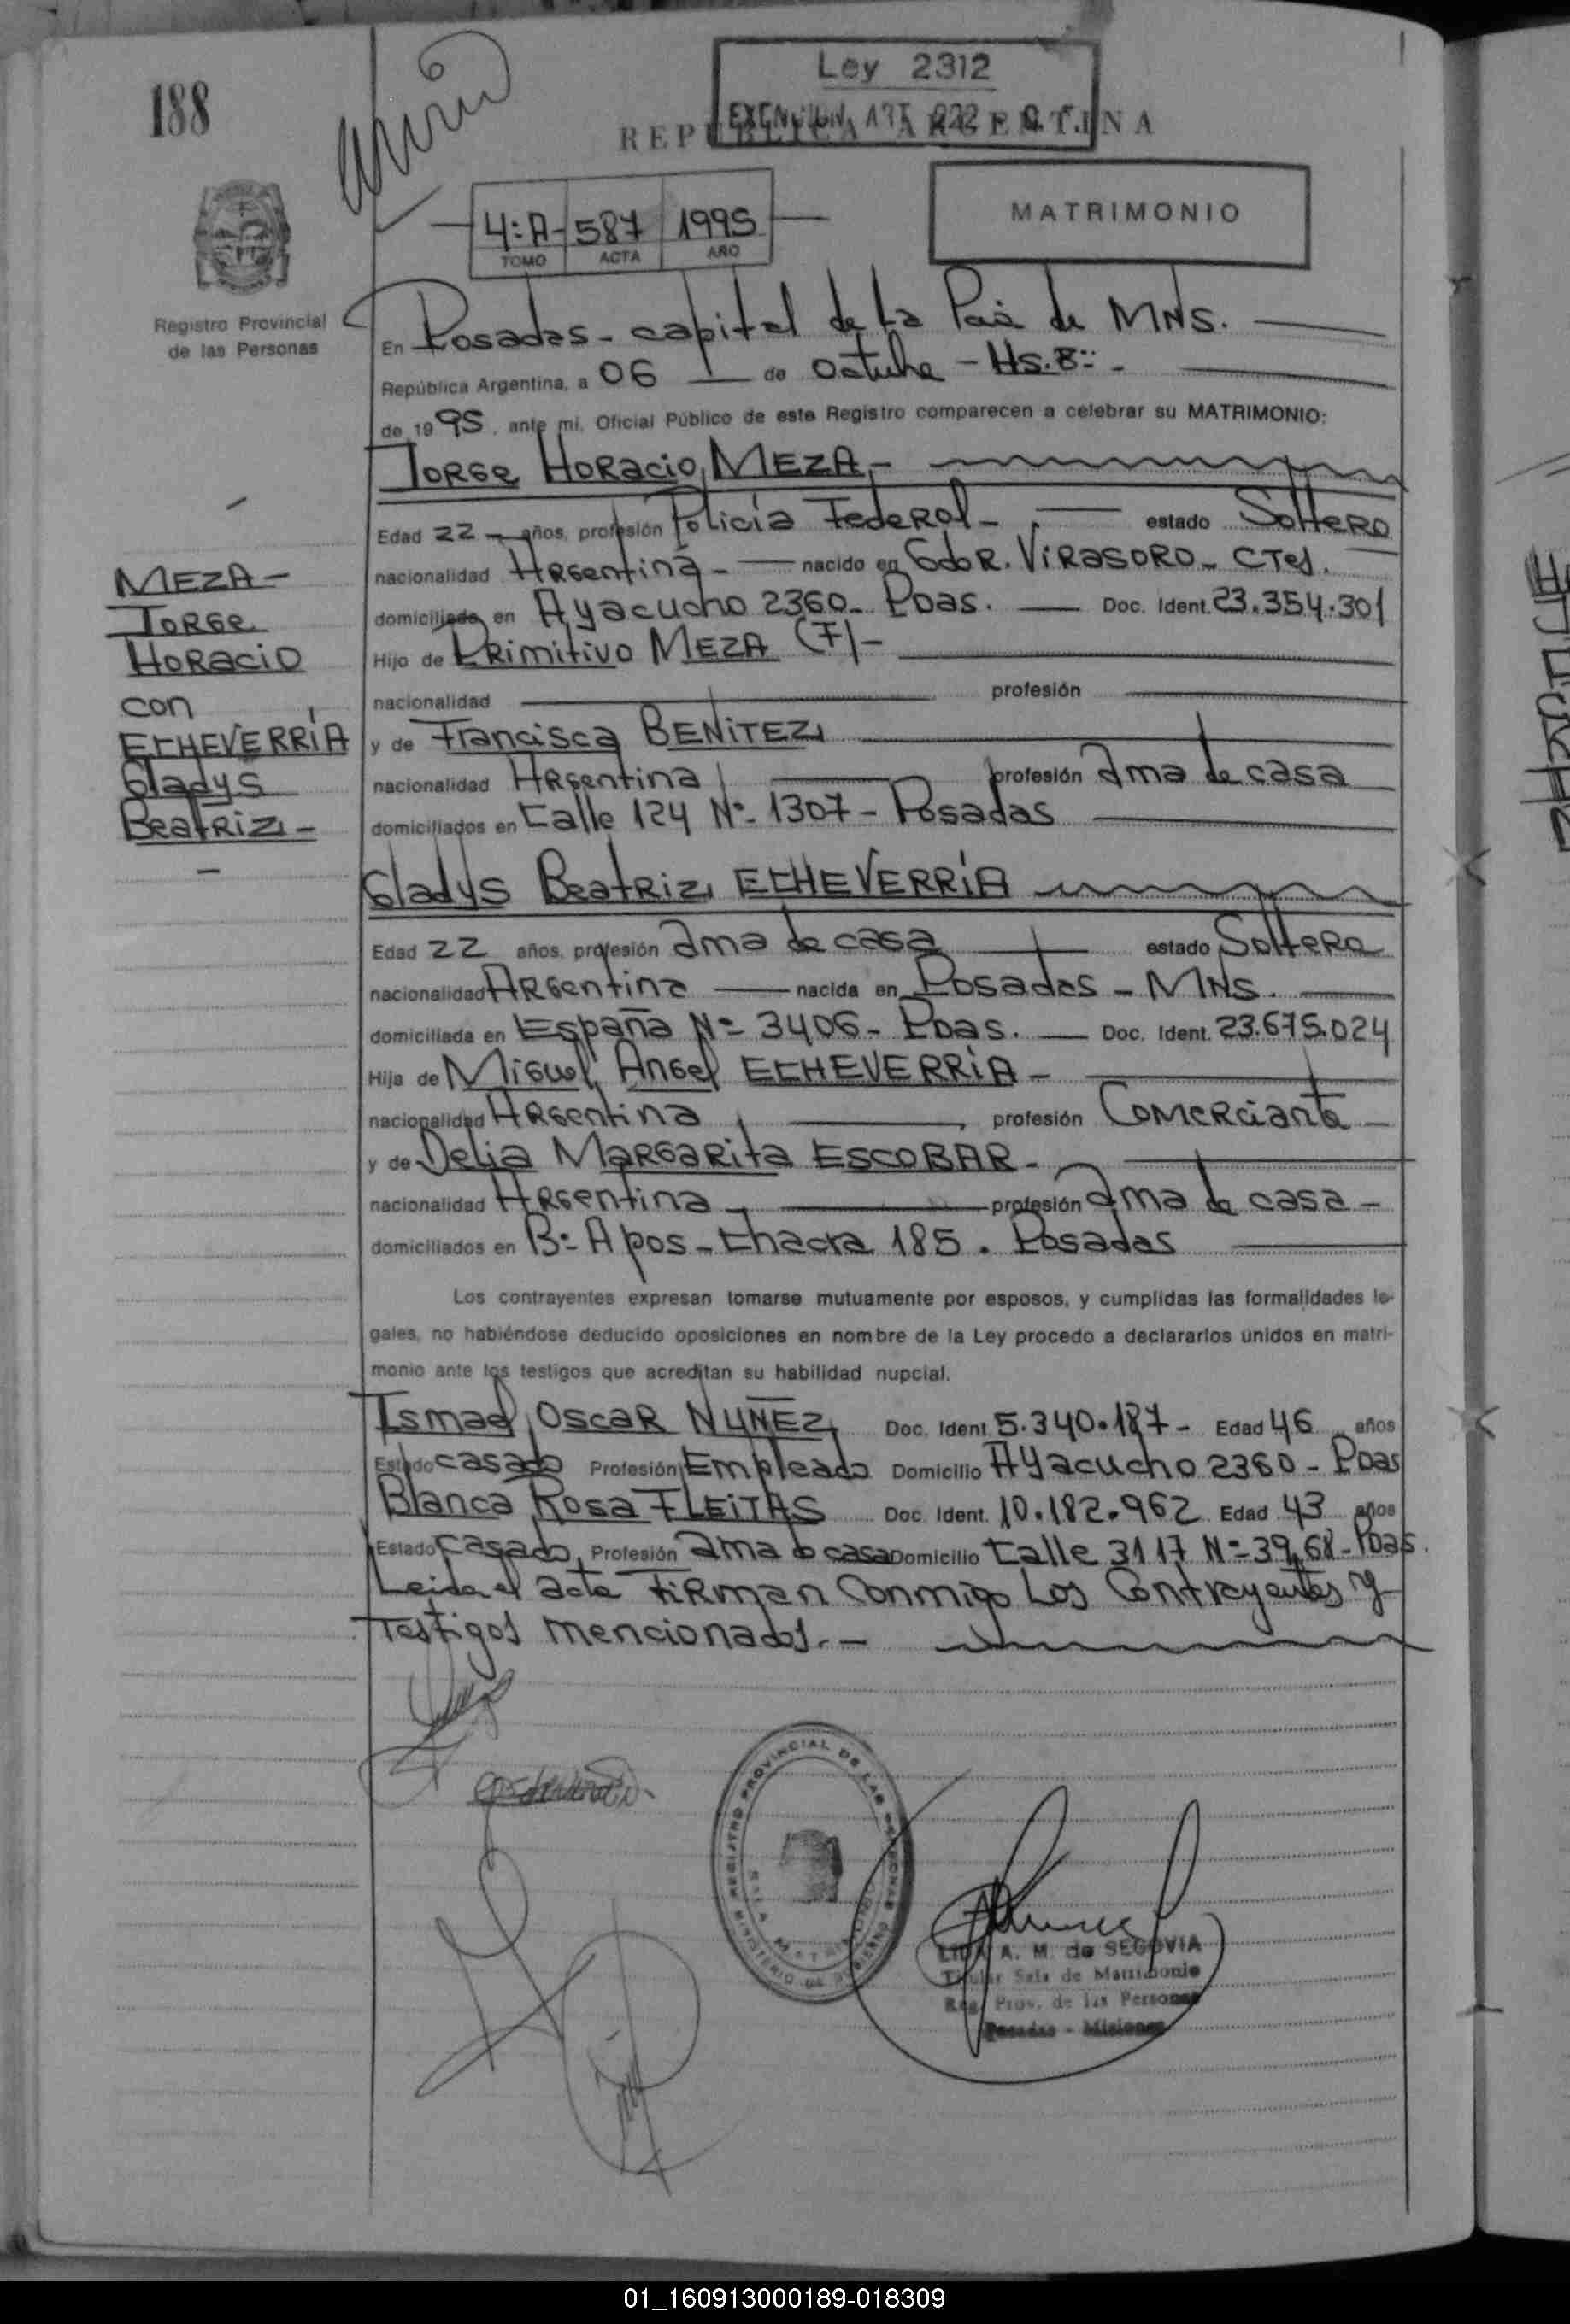 188
Ley 2312
EXENCION ART 222
REPUBLICA ARGENTINA
4:A- 587 1995
TOMO ACTA AÑO
MATRIMONIO
Registro Provincial
de las Personas
En Posadas - capital de la Pcia de MNS.
República Argentina, a 06 de Octubre - Hs. 8:: -
de 1995, ante mi, Oficial Público de este Registro comparecen a celebrar su MATRIMONIO:
Jorge Horacio MEZA.-
Edad 22 años, profesión Policía Federal - estado Soltero
nacionalidad Argentina - nacido en Gdor. Virasoro - Ctes.
domiciliado en Ayacucho 2360 - Pdas. Doc. Ident. 23.354.301
Hijo de Primitivo MEZA (F)-
nacionalidad profesión
y de Francisca BENITEZ
nacionalidad Argentina profesión ama de casa
domiciliados en Calle 124 Nº 1307 - Posadas
MEZA -
Jorge
Horacio
con
ECHEVERRÍA
Gladys
Beatriz -
Gladys Beatriz ECHEVERRÍA
Edad 22 años, profesión ama de casa estado Soltera
nacionalidad Argentina nacida en Posadas - MNS.
domiciliada en España Nº 3406 - Pdas. Doc. Ident. 23.675.024
Hija de Miguel Angel ECHEVERRÍA -
nacionalidad Argentina profesión Comerciante
y de Delia Margarita ESCOBAR -
nacionalidad Argentina profesión ama de casa -
domiciliados en Bº Apos - Chacra 185. Posadas
Los contrayentes expresan tomarse mutuamente por esposos, y cumplidas las formalidades le-
gales, no habiéndose deducido oposiciones en nombre de la Ley procedo a declararlos unidos en matri-
monio ante los testigos que acreditan su habilidad nupcial.
Ismael Oscar NUÑEZ Doc. Ident. 5.340.187 - Edad 46 años
Estado casado Profesión Empleado Domicilio Ayacucho 2360 - Pdas
Blanca Rosa FLEITAS Doc. Ident. 10.182.962 Edad 43 años
Estado casado Profesión ama d casa Domicilio Calle 3117 Nº 3968 - Pdas.
Leida el acta firman conmigo los contrayentes y
testigos mencionados. -
REGISTRO PROVINCIAL DE LAS PERSONAS
SALA MATRIMONIO
MINISTERIO DE GOBIERNO
LIDA A. M. de SEGOVIA
Titular Sala de Matrimonio
Reg. Prov. de las Personas
Posadas - Misiones
01_160913000189-018309